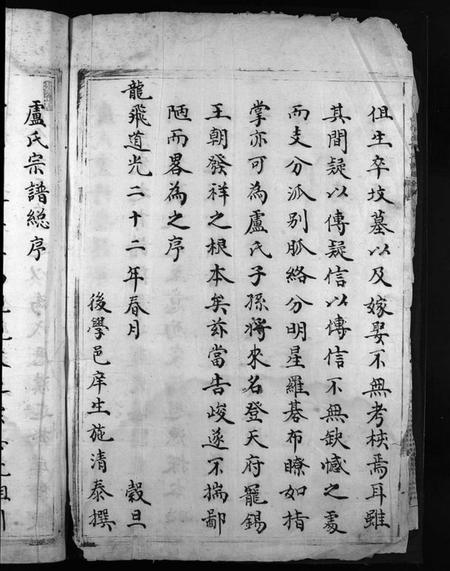 但生卒坟墓以及嫁娶不無考核焉耳雖
其間疑以傳疑信以傳信不無缺憾之處
而支分派别脉絡分明星羅碁布瞭如指
掌亦可為盧氏子孫將來名登天府寵錫
王朝發祥之根本矣兹當告峻遂不揣鄙
陋而畧為之序
龍飛道光二十二年春月 穀旦
後學邑庠生施清泰撰
盧氏宗譜総序